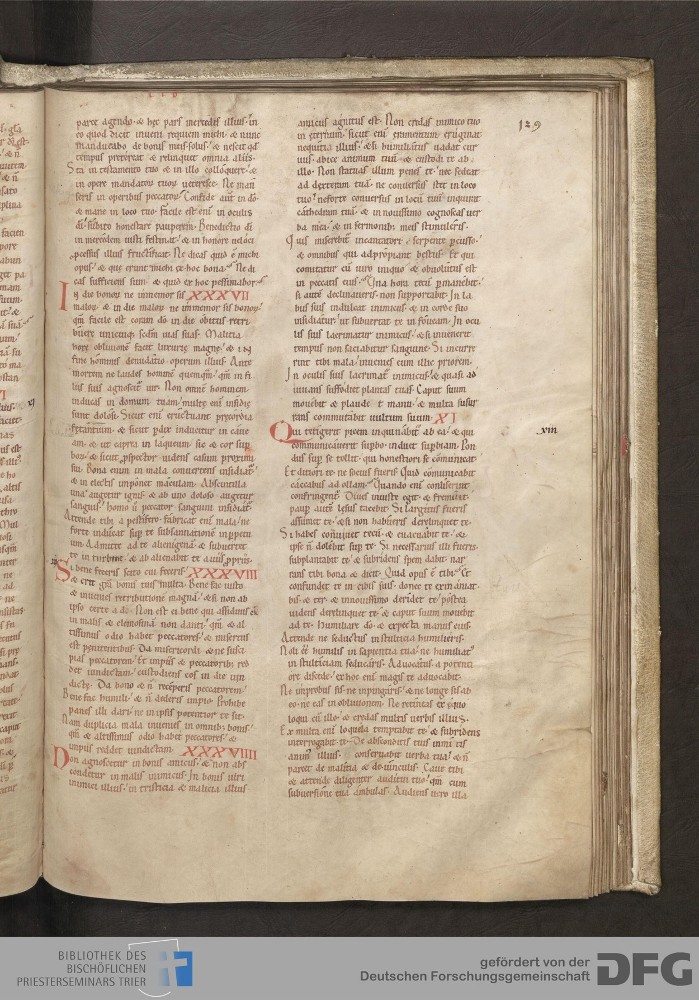 paret agendo· & hec pars mercedis illius· in
eo quod dicit inveni requiem michi· & nunc
manducabo de bonis meis solus· & nescit qd
tempus preteriet & relinquet omnia aliis·
Sta in testamento tuo & in illo colloquere· &
in opere mandatorū tuorū veteresce· Ne man
seris in operibus peccatorū· Confide aut̄ in dō·
& mane in loco tuo· facile est enī in oculis
dī· subito honestare pauperem· Benedictio dī
in mercedem iusti festinat· & in honore veloci
pcessus illius fructificat· Ne dicas quid ē michi
opus· & que erunt michi ex hoc bona· Ne di
cas sufficiens sum· & quid ex hoc pessimabor·
In die bonorū ne immemor sis XXXVII
malorū· & in die malorū ne immemor sis bonorū·
qm̄ facile est coram dō in die obitus retri
buere unicuiq; scdm̄ vias suas· Malitia
hore oblivionē facit luxurie magne· & in
fine hominis denudatio operum illius· Ante
mortem ne laudes hominē quenqm̄· qm̄ in fi
liis suis agnoscit᷑ vir· Non omnē hominem
inducas in domum tuam· multe enī insidie
sunt dolosi· Sicut enī eructuant precordia
fetantium· & sicut pdix inducitur in cave
am· & ut caprea in laqueum· sic & cor sup
borū· & sicut pspector videns casum proximi
sui· Bona enim in mala convertens insidiat᷑·
& in electis imponet maculam· Ab scintilla
una augetur ignis· & ab uno doloso augetur
sanguis· homo ū peccator sanguini insidiat᷑·
Attende tibi a pestifero· fabricat enī mala· ne
forte inducat sup te subsannationē in ppetu
um· Admitte ad te alienigenā· & subvertet
te in turbine· & ab alienabit te a viis ppriis·
Si bene feceris scito cui feceris· XXXVIII
& erit grā in bonis tuis multa· Bene fac iusto
& invenies retributionē magnā· & si non ab
ipso certe a dō· Non est ei bene qui assiduus ē
in malis· & elemosinā non danti· qm̄ & al
tissimus odio habet peccatores· & misertus
est penitentibus· Da misericordi· & ne susci
pias peccatorem· Et impiis & peccatorib; red
det vindictam· custodiens eos in die vin
dicte· Da bono· & n̄ receperis peccatorem·
Bene fac humili· & n̄ dederis impio· prohibe
panes illi dari· ne in ipsis potentior te sit·
Nam duplicia mala invenies in omnib; bonis·
qm̄ & altissimus odio habet peccatores· &
impiis reddet vindictam· XXXVIIII
Non agnoscetur in bonis amicus· & non abs
condetur in malis inimicus· In bonis viri
inimici illius· in tristicia & malicia illius
129
amicus agnitus est· Non credas inimico tuo
in eternum· sicut enī eramentum eruginat
nequitia illius· & si humiliatus vadat cur
vus· abice animum tuū· & custodi te ab
illo· Non statuas illum penes te· nec sedeat
ad dexteram tuā· ne conversus stet in loco
tuo· ne forte conversus in locū tuū inquirat
cathedram tuā· & in novissimo cognoscas ver
ba mea· & in sermonib; meis stimuleris·
Quis miserebit᷑ incantatori a serpente pcusso·
& omnibus qui adpropiant bestiis· Et qui
comitatur cū viro iniquo· & obvolutus est
in peccatis eius· Una hora tecū pmanebit·
si autē declinaveris· non supportabit· In la
biis suis indulcat inimicus· & in corde suo
insidiatur· ut subvertat te in foveam· In ocu
lis suis lacrimatur inimicus· & si invenerit
tempus non saciabitur sanguine· Si incurre
rint tibi mala· invenies eum illic priorem·
In oculis suis lacrimat᷑ inimicus· & quasi ad
iuvans suffodiet plantas tuas· Caput suum
movebit & plaudet manu· & multa susur
rans commutabit vultum suum· XI
Qui tetigerit picem inquinabit᷑ ab ea· & qui
communicaverit supbo· induet supbiam· Pon
dus sup se tollit· qui honestiori se cōmunicat·
Et ditiori te ne socius fueris· Quid cōmunicabit
caccabus ad ollam· Quando enī conliserint
confringent᷑· Dives iniuste egit· & fremuit·
paup autē lesus tacebit· Si largitus fueris
assumet te· & si non habueris derelinquet te·
Si habes convivet tecū· & evacuabit te· &
ipse n̄ dolebit sup te· Si necessarius illi fueris·
subplantabit te· & subridens spem dabit· nar
rans tibi bona· & dicet· Quid opus ē tibi· Et
confundet te in cibis suis· donec te exinaniat
bis· & ter· & in novissimo deridet te· postea
videns derelinquet te· & caput suum movebit
ad te· Humiliare dō· & expecta manus eius·
Attende ne seductus in stulticia humilieris·
Noli eē humilis in sapientia tua· ne humiliat᷑
in stulticiam seducaris· Advocatus a potenti
ore discede· ex hoc enī magis te advocabit·
Ne improbus sis· ne inpingaris· & ne longe sis ab
eo· ne eas in oblivionem· Ne retineas ex equo
loqui cū illo· & credas multis verbis illius·
Ex multa enī loquela temptabit te· & subridens
interrogabit te· De absconditis tuis inmitis
animus illius conservabit verba tua· & n̄
parcet de malitia & de vinculis· Cave tibi
& attende diligenter auditui tuo· qm̄ cum
subversione tua ambulas· Audiens vero illa
xiii
BIBLIOTHEK DES
BISCHÖFLICHEN
PRIESTERSEMINARS TRIER
gefördert von der
Deutschen Forschungsgemeinschaft
DFG